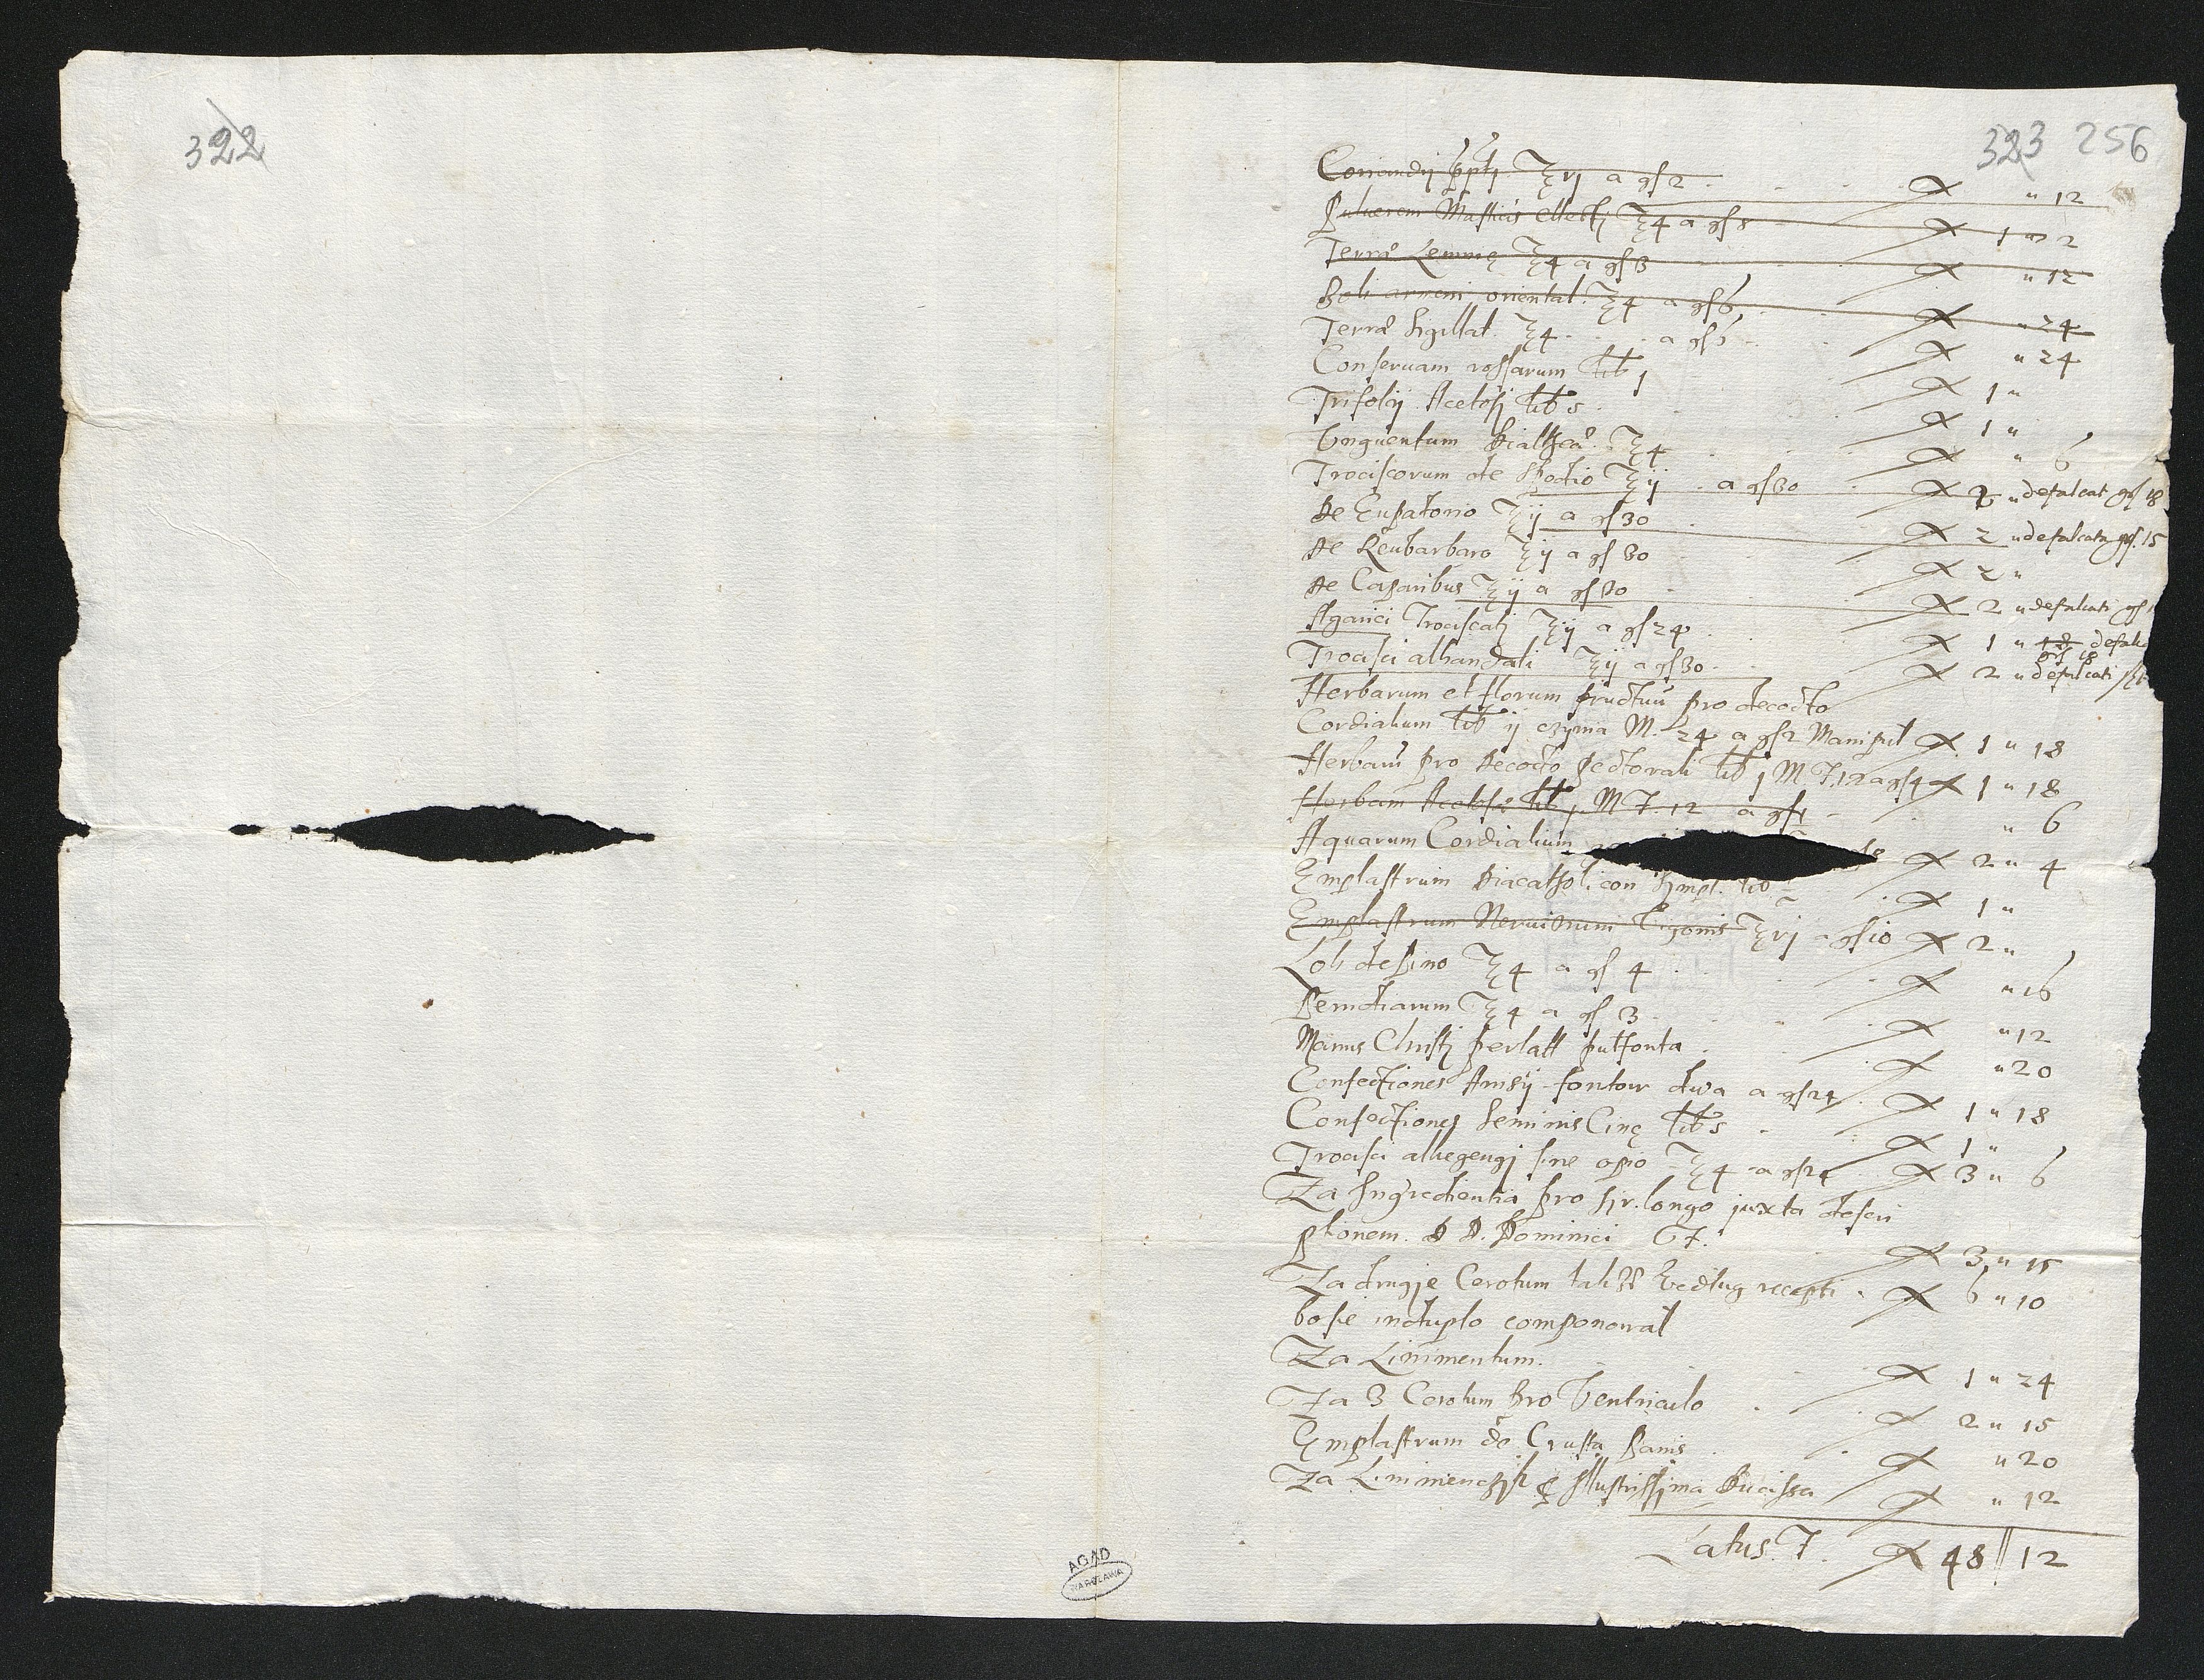 322
323 256
Coriandrj ppti ʒvj a gſ 2 fl " 12
Puluerem Masticis ellectj ʒ4 a gſ 8 fl 1 " 2
Terrae Lemnię ʒ4 a gſ 3 fl " 12
Boli armeni oriental. ʒ4 a gſ 6 fl " 24
Terrae Sigillat. ʒ4 a gſ 6 fl " 24
Conseruam rossarum lib 1 fl 1 "
Trifolij Acetosj lib s fl 1 "
Vnguentum Dialtheae ʒ4 fl " 6
Trociscorum de Spodio ʒij a gſ 30 fl 2 " defalcat gſ 18
de Eupatorio ʒij a gſ 30 fl 2 " defalcata gſ. 15
de Reubarbaro ʒij a gſ 30 fl 2 "
de Caparibus ʒij a gſ 30 fl 2 " defalcati gſ
Agarici Trociscatj ʒij a gſ 24 fl 1 " 18 defalc
gſ 18
Trocisci alhandali ʒij a gſ 30 fl 2 " defalcati
Herbarum et florum fructuu pro decocto
Cordialium lib ij czynia M. 24 a gſ 2 Manipul fl 1 " 18
Herbaru pro decocto pectorali lib j M 7. 12 a gſ 4 fl 1 " 18
Herbam Acetosae lib j M 7. 12 a gſ 1 " 6
Aquarum Cordialium 8 fl 2 " 4
Emplastrum Diacatholicon simpl. lib fl 1 "
Emplastrum Neruinum Vigonis ʒvj a gſ 10 fl 2 "
Loh de Pino ʒ4 a gſ 4 fl " 16
Penidiarum ʒ4 a gſ 3 fl " 12
Manus Christj perlatt pulfonta fl " 20
Confectiones Anisij fontow dwa a gſ 24 fl 1 " 18
Confectiones Seminis Cinę lib s fl 1 "
Trocisci alkegengj sine opio ʒ4 a gſ 24 fl 3 " 6
Za Ingredientia pro sir. longo juxta descri
ptionem. D D. Dominici fl 3 " 15
Za drugie Cerotum takisz wedlug recepti fl 6 " 10
bosie in duplo componowal
Za Linimentum. fl 1 " 24
Za 3 Cerotum pro Ventriculo fl 2 " 15
Emplastrum de Crusta Panis fl " 20
Za Linimenczik Illustrissima Ducissa fl " 12
Latus. 7. fl 48 || 12
AGAD
WARSZAWA